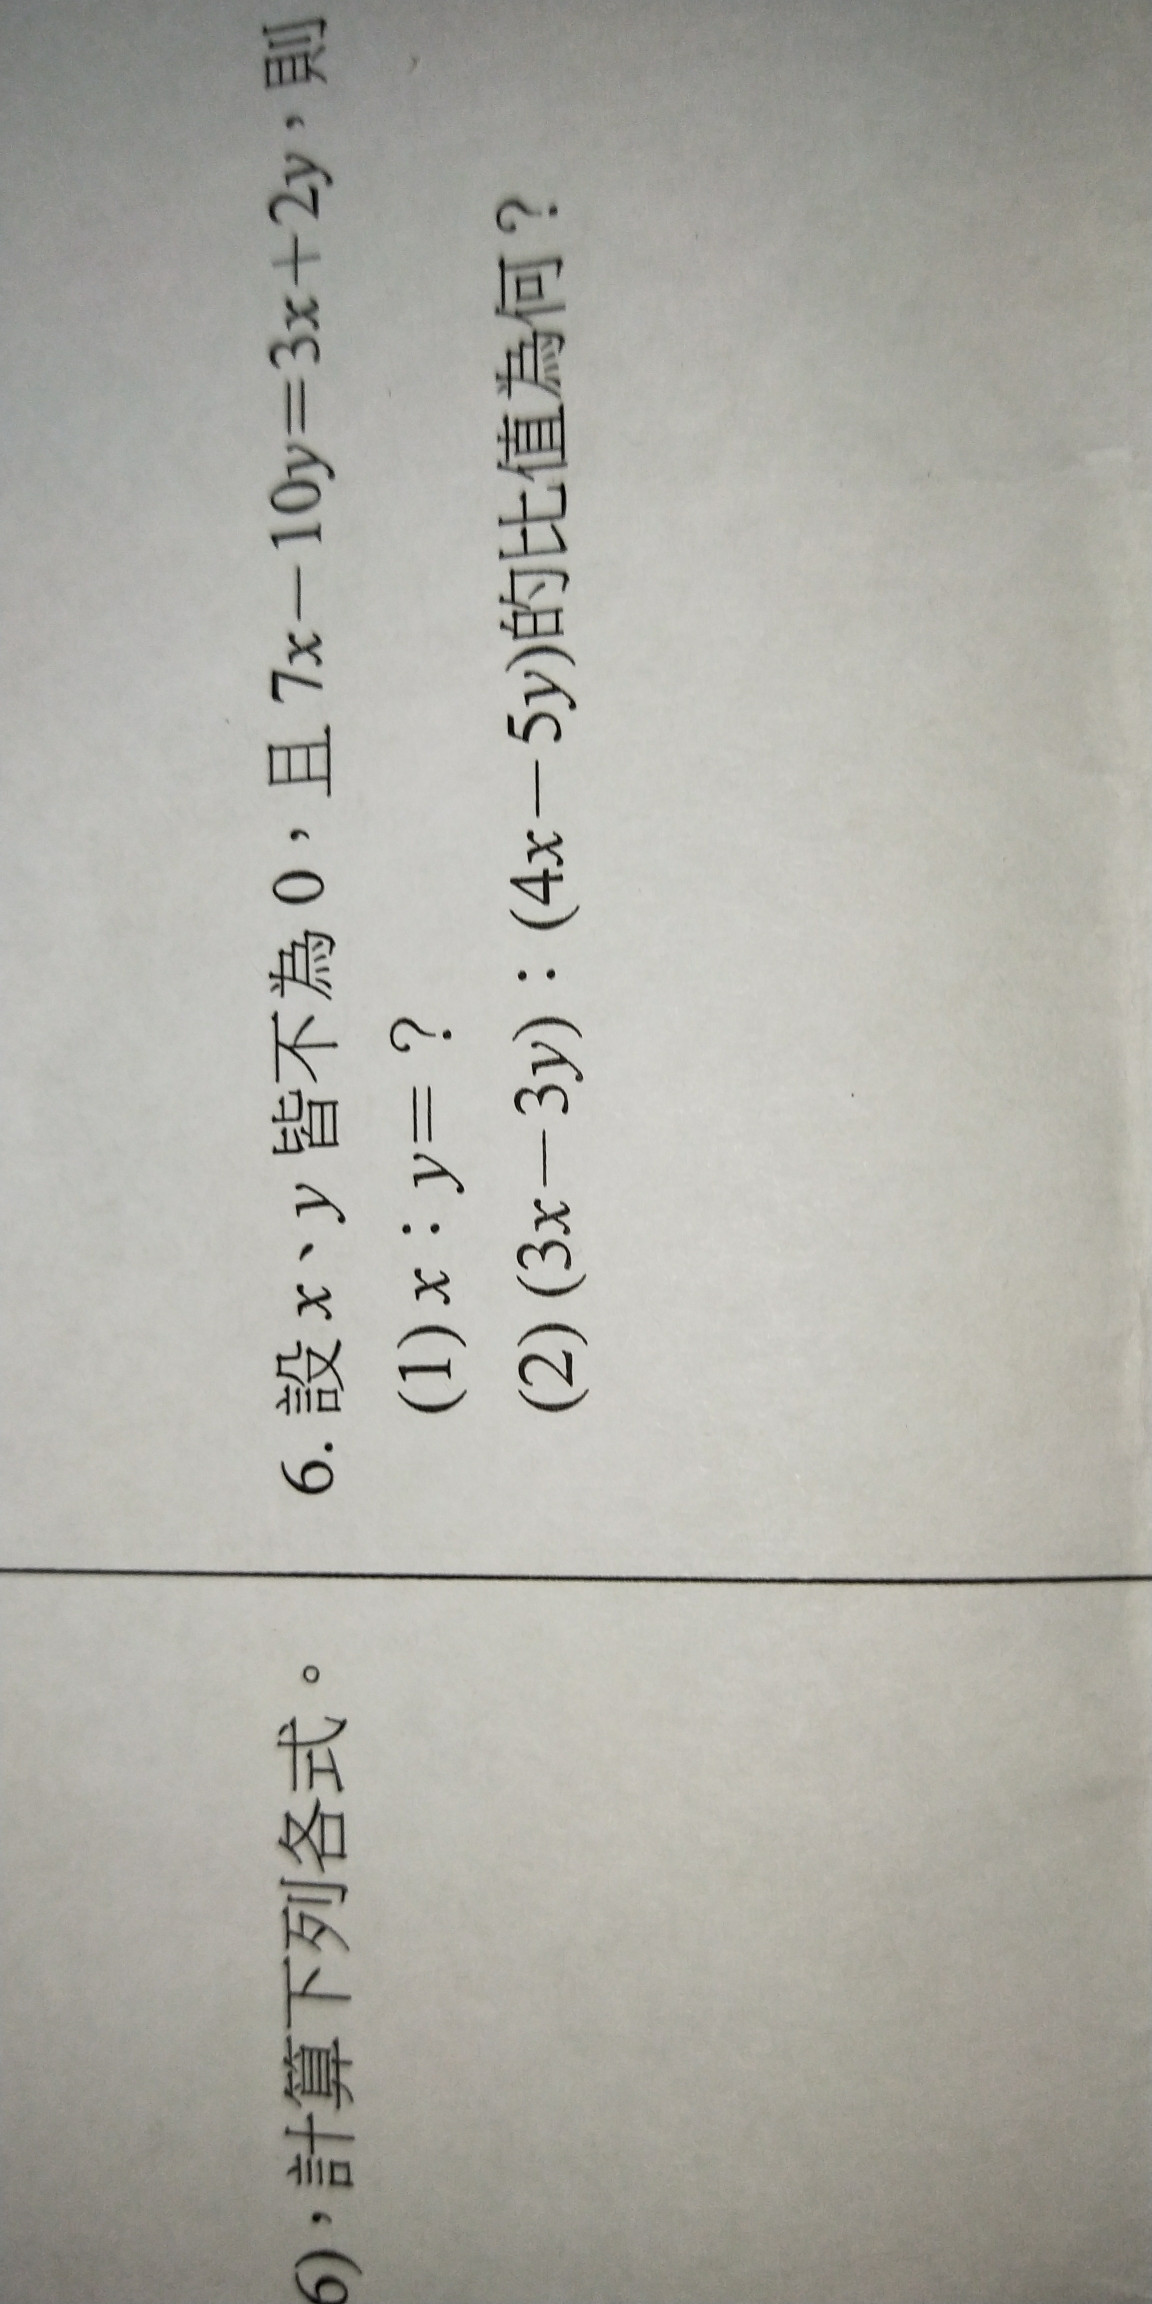 6)，計算下列各式。
6. 設 x、y 皆不為 0，且 7x－10y＝3x＋2y，則
(1) x：y＝？
(2) (3x－3y)：(4x－5y)的比值為何？